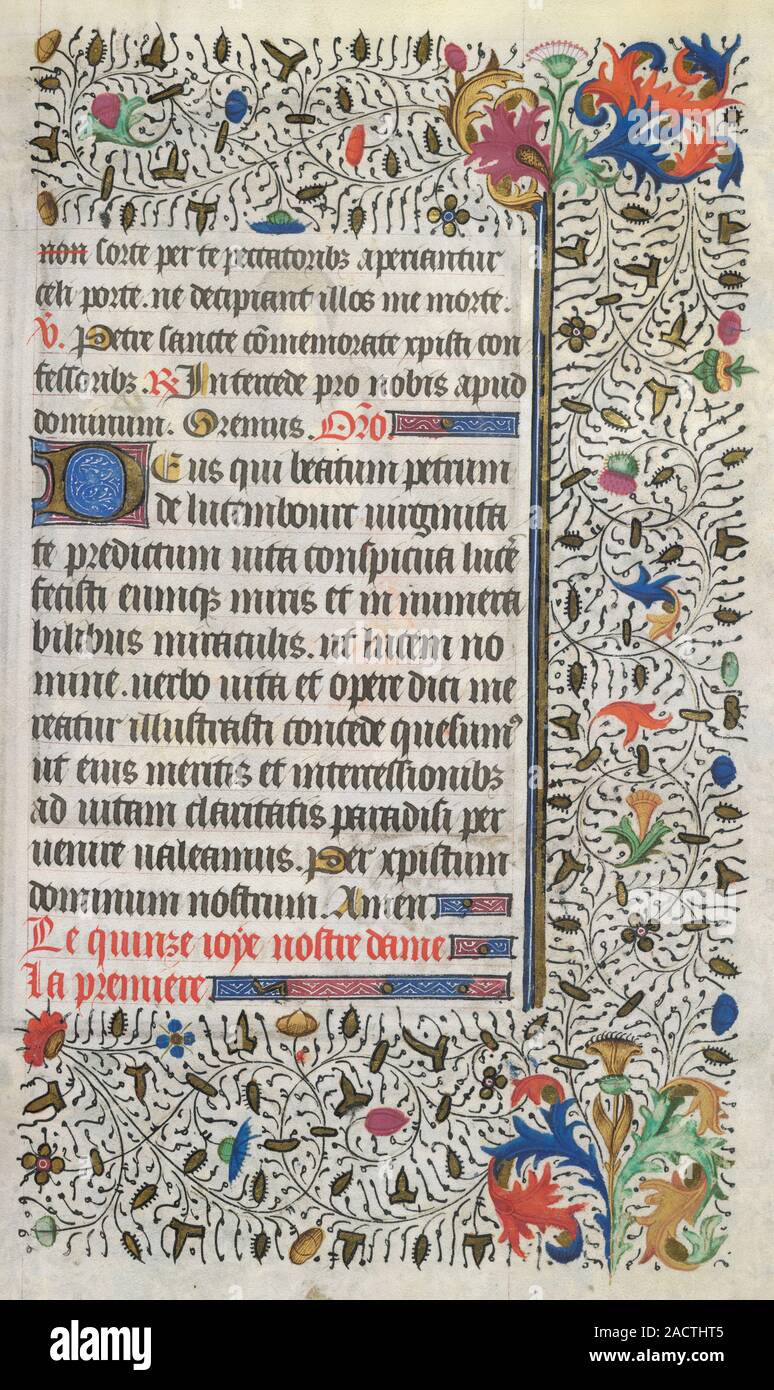 non sorte per te peccatoribꝫ aperiantur
celi porte. ne decipiant illos me morte.
℣. Petre sancte cōmemorate xpisti con
fessoribꝫ. ℟ Intercede pro nobis apud
dominum. Oremus. Orō.
Deus qui beatum petrum
de lucembourc uirginita
te predictum uita conspicua lucē
fecisti eumqꝫ miris et in numera
bilibus miraculis. ut lucem no
mine. uerbo uita et opere dici me
reatur illustrasti concede quesumꝰ
ut eius meritis et intercessionibꝫ
ad uitam claritatis paradisi per
uenire ualeamus. Per xpistum
dominum nostrum. Amen.
Le quinze ioye nostre dame
La premiere
alamy
Image ID: 2ACTHT5
www.alamy.com